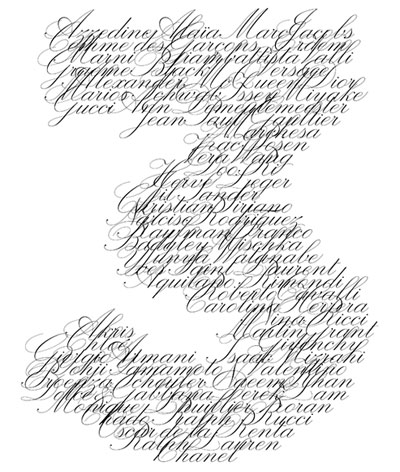 Azzedine Alaïa Marc Jacobs
Comme des Garçons Erdem
Marni Giambattista Valli
Yvonne Black Versace
Alexander McQueen Dior
Marios Schwab Issey Miyake
Gucci Ann Demeulemeester
Jean Paul Gaultier
Marchesa
Zac Posen
Vera Wang
Doo.Ri
Herve Leger
Jil Sander
Christian Siriano
Narciso Rodriguez
Kaufman Franco
Badgley Mischka
Junya Watanabe
Yves Saint Laurent
Aquilano Rimondi
Roberto Cavalli
Carolina Herrera
Nina Ricci
Akris Martin Grant
Chloe Givenchy
Giorgio Armani Isaac Mizrahi
Yohji Yamamoto Valentino
Proenza Schouler Naeem Khan
Dolce & Gabbana Derek Lam
Monique Lhuillier Koran
Chado Ralph Rucci
Oscar de la Renta
Ralph Lauren
Chanel